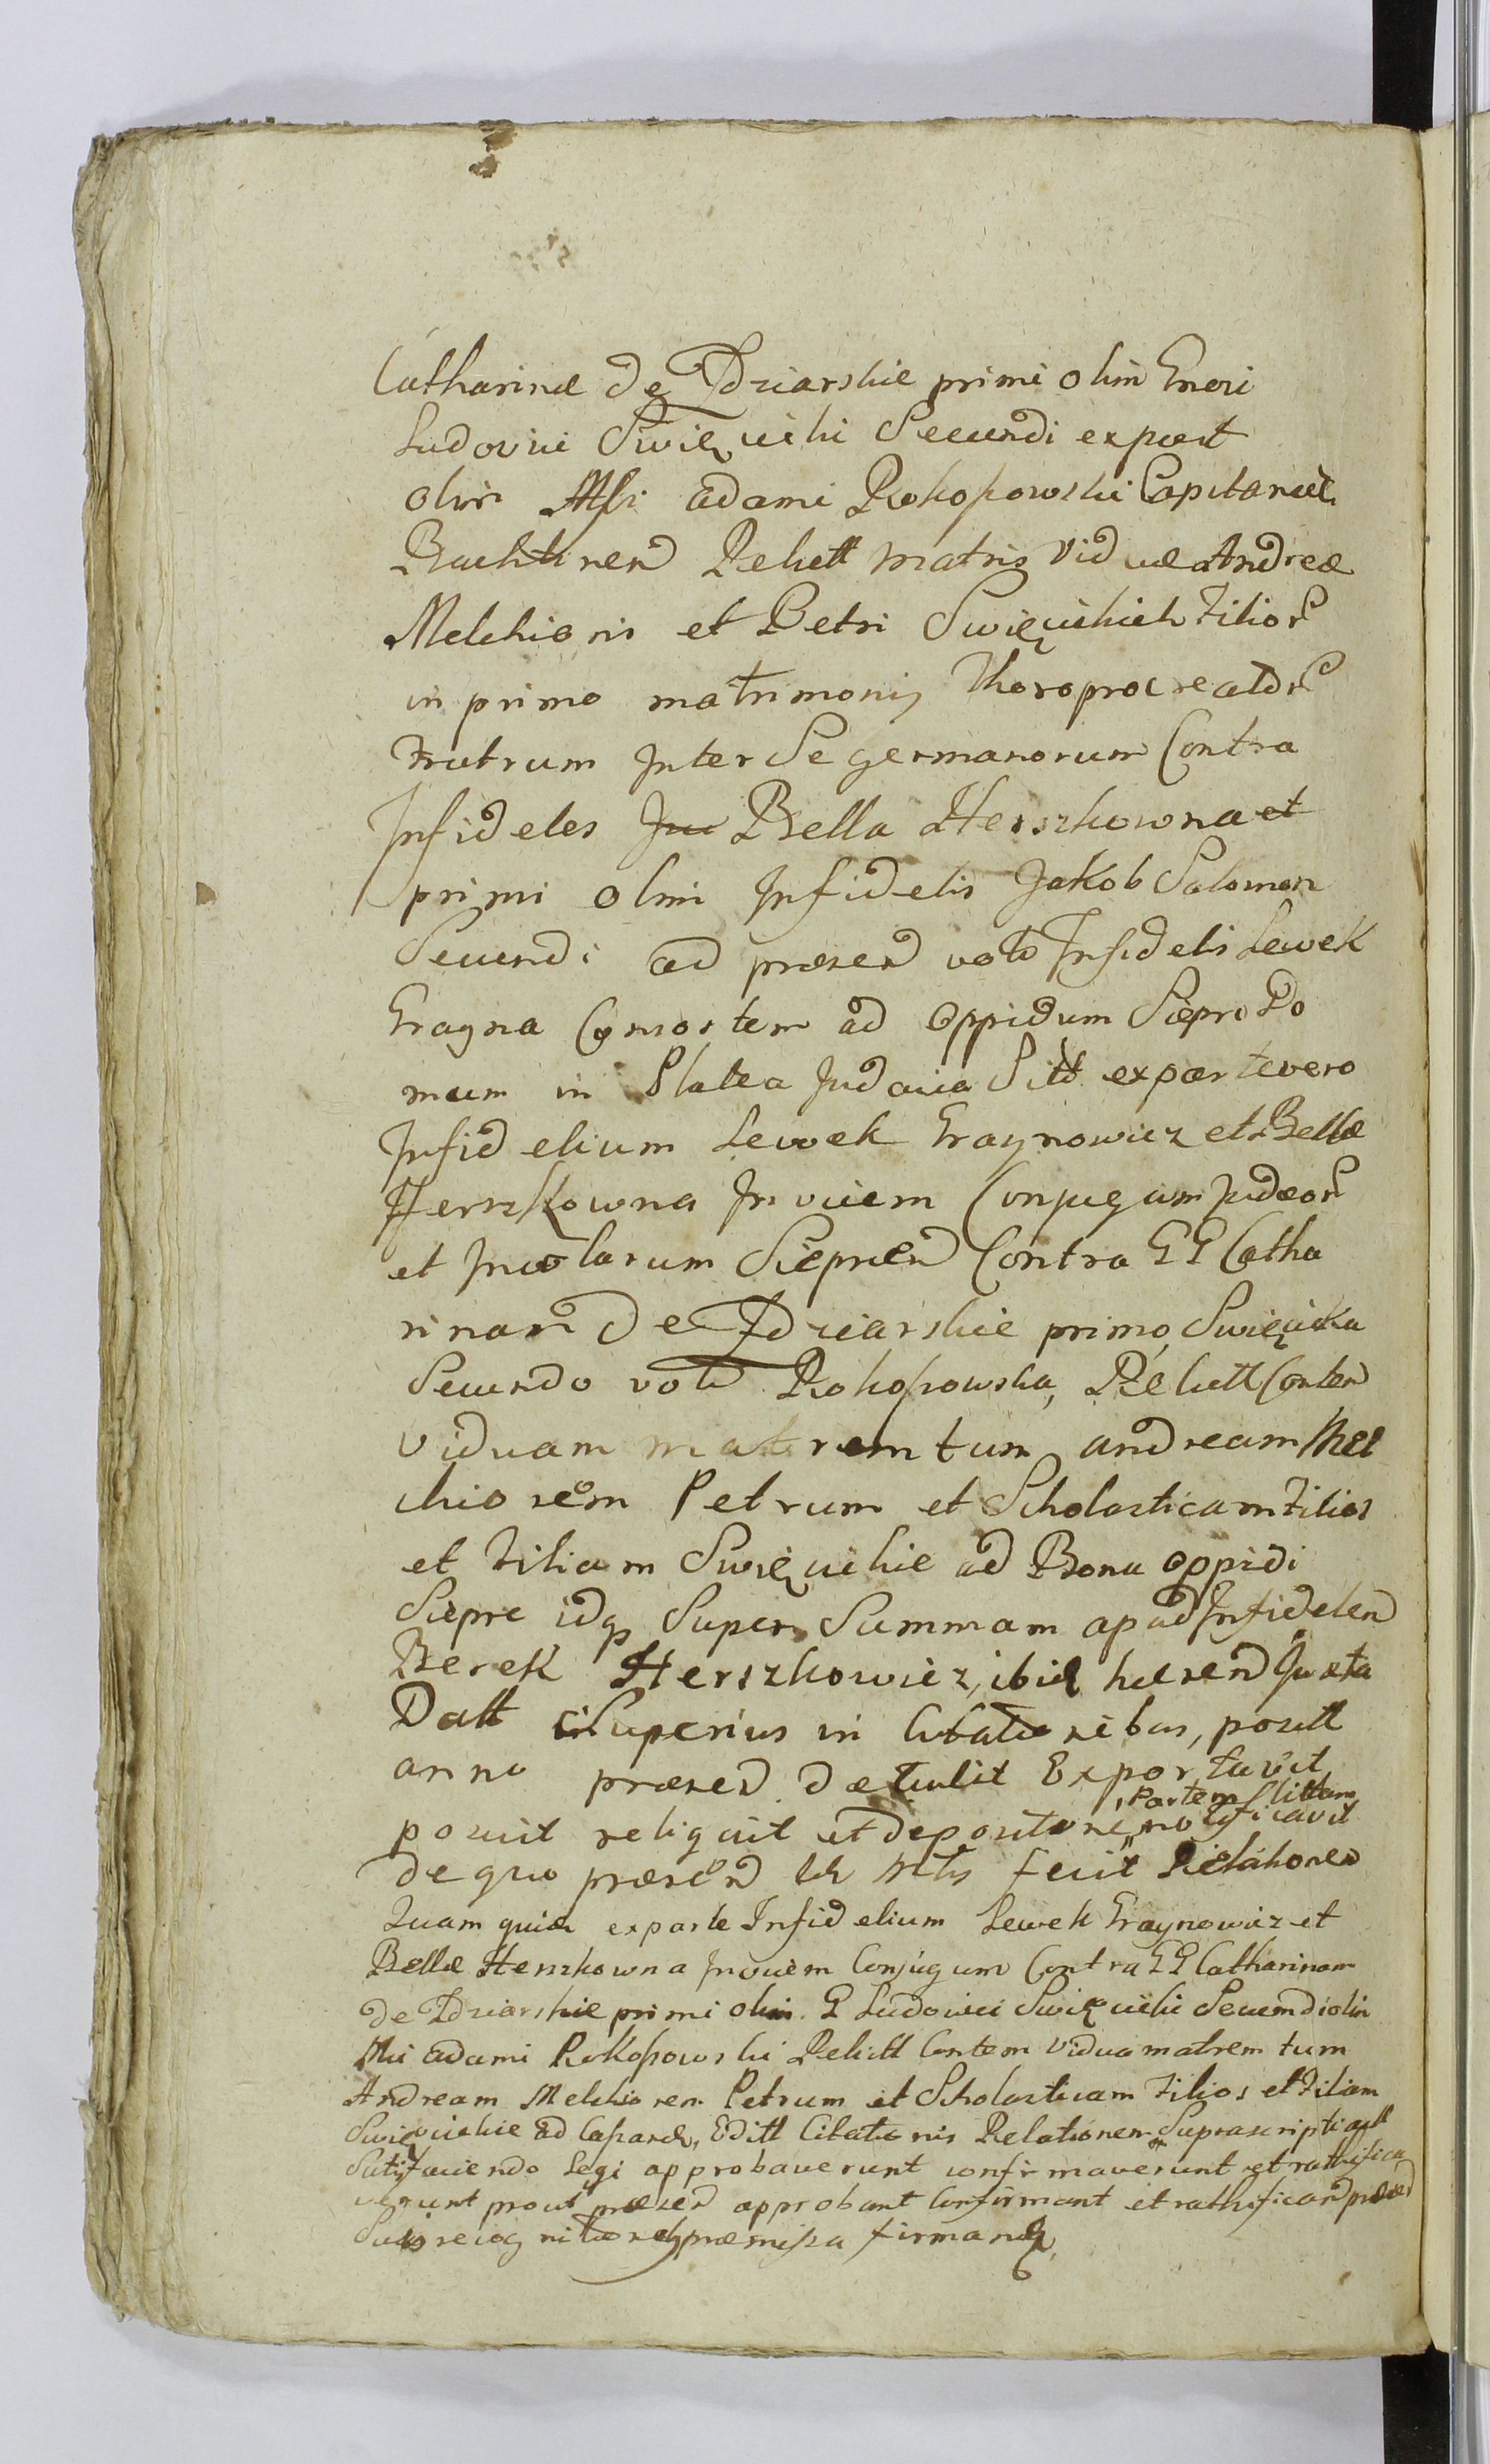 Catharinæ de Idziarskie primi olim Gnosi
Ludovici Swięcicki Secundi expart
olim Msi Adami Rokossowski Capitanei
Bachtinen Relictt Matris Viduæ Andreæ
Melchioris et Petri Swięcickich Filior
in primo matrimonij Thoro procreator
Fratrum Inter Se germanorum Contra
Infideles Bella Herszkowna et
primi olim Infidelis Jakob Salomon
Secundi ad præsen voto Infidelis Lewek
Grayna Consortem ad Oppidum Siepre Do
mum in Platea Judaica Sitt ex parte vero
Infidelium Lewek Graynowicz et Bellæ
Herszkowna Invicem Conjugum Judæor
et Incolarum Siepren Contra GG Catha
rinam de Idziarskie primo Swięcicka
Secundo voto Rokossowska, Relictt Conten
viduam matrem tum Andream Mel
chiorem Petrum et Scholasticam Filios
et Filiam Swięcickie ad Bona oppidi
Siepre idq Super Summam apud Infidelem
Berek Herszkowicz, ibid hæren Juxta
Datt Superius in Citationibus, positt
anno præsen detulit Exportavit
posuit reliquit et depositione notificavit
Partem Cittam
de quo præsen Mtis fecit Relationem
Quam quidem ex parte Infidelium Lewek Graynowicz et
Bellæ Herszkowna Invicem Conjugum Contra GG Catharinam
de Idziarskie primi olim G Ludovici Swięcicki Secundi olim
Msi Adami Rokossowski Relictt Conten Viduam matrem tum
Andream Melchiorem Petrum et Scholasticam Filios et Filiam
Swięcickie ad Edittt Citationis Relationem Suprascripti
Satisfaciendo Legi approbaverunt confirmaverunt et rathifica
verunt prout præsen approbant Confirmant et rathifican
recog præmissa